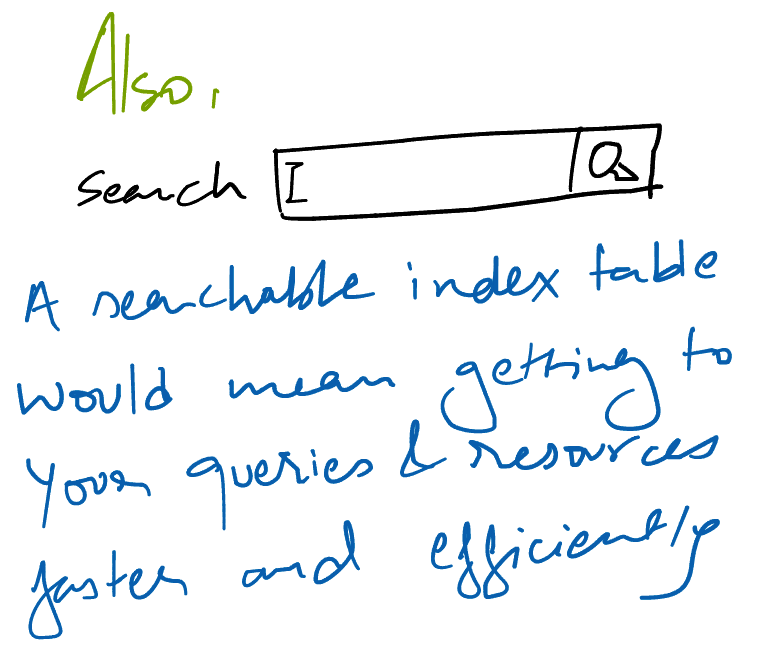 Also,
Search
A searchable index table
would mean getting to
your queries & resources
faster and efficiently